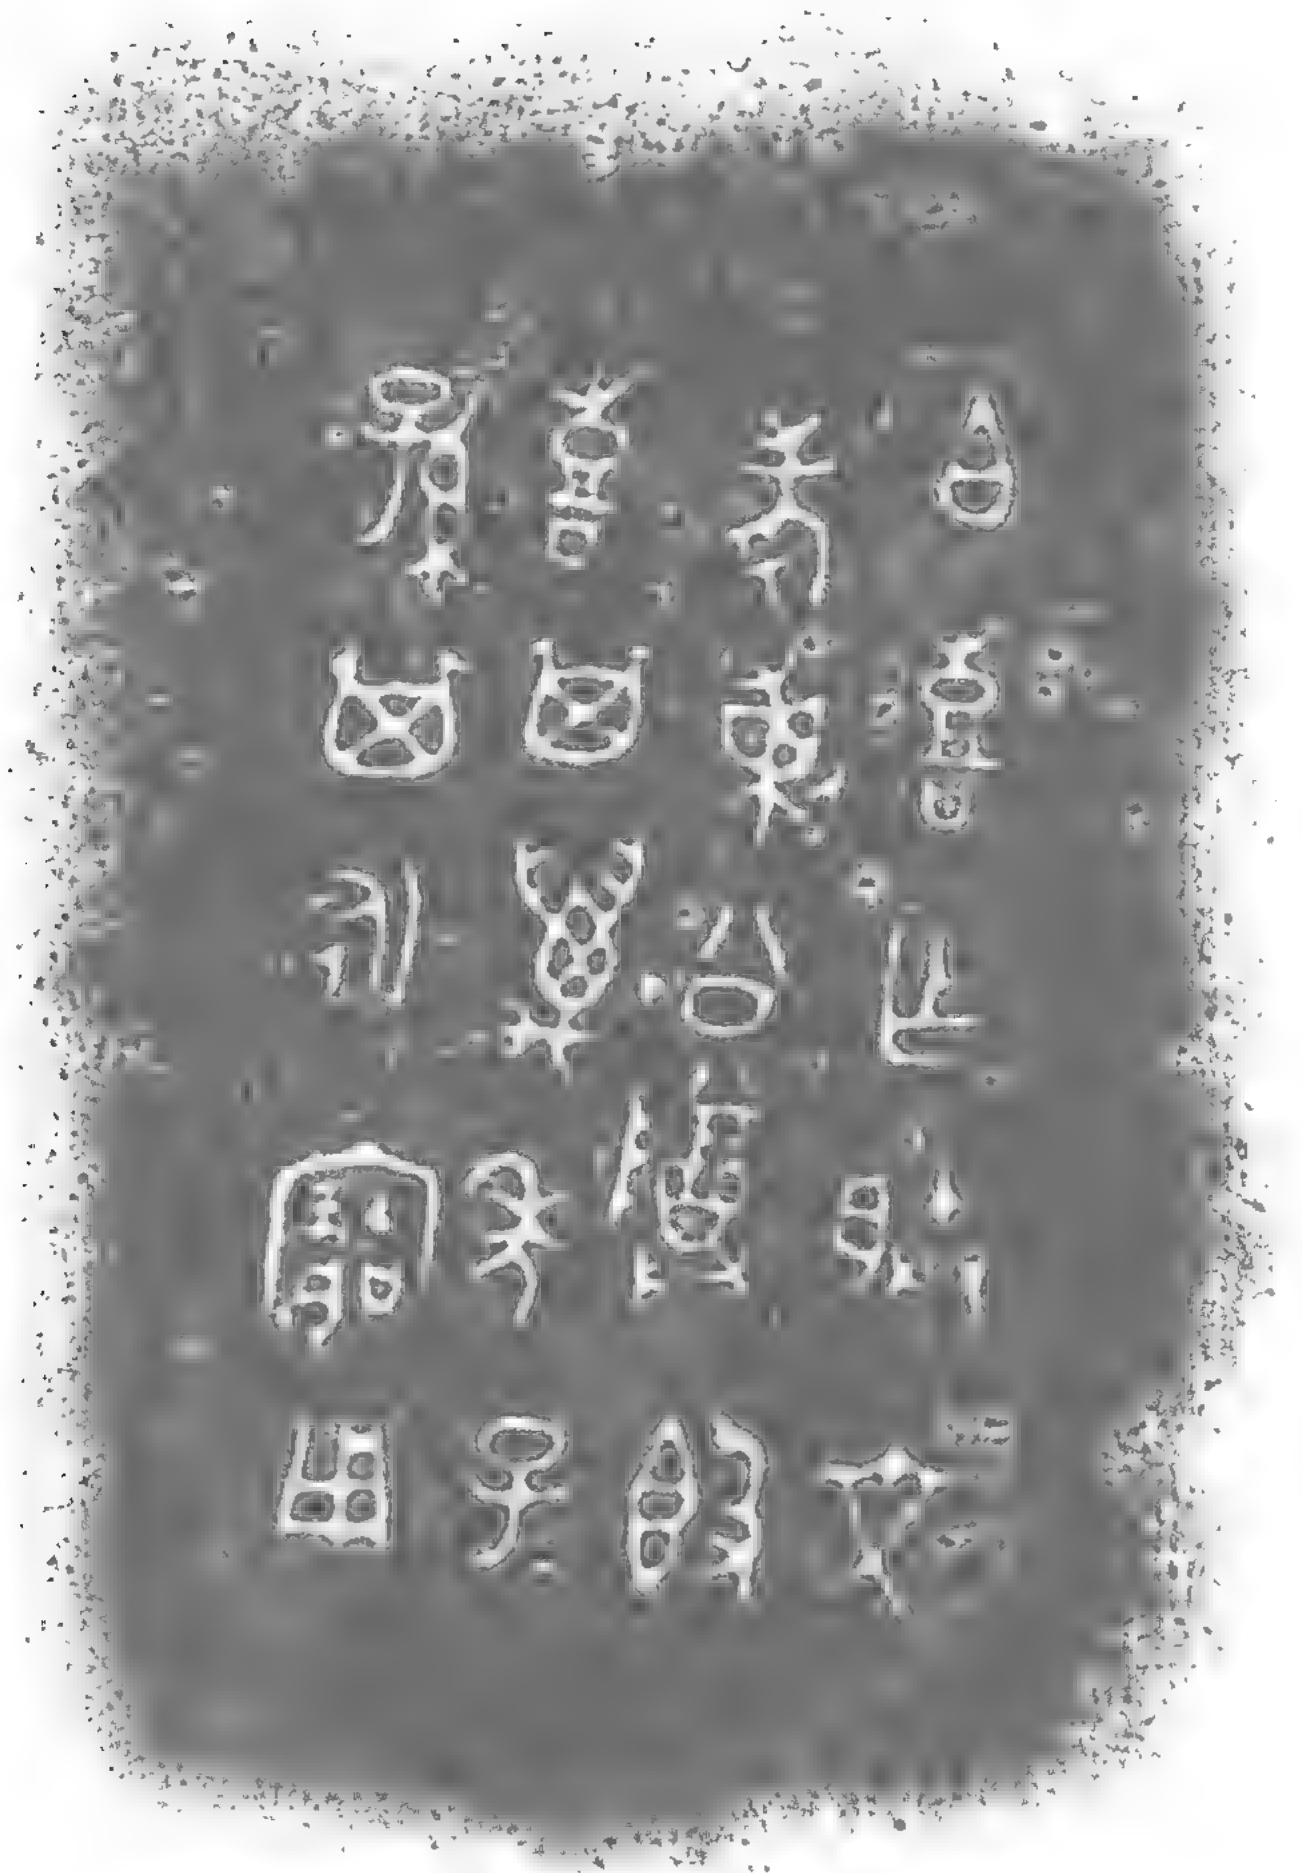 白喜乍朕文
考剌公尊𣪘
喜其萬年子
孫其永寶用